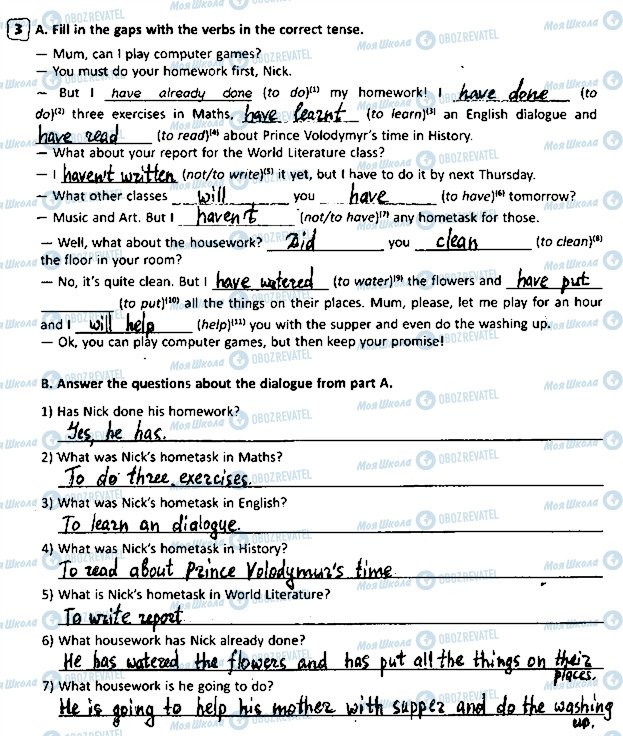 3 A. Fill in the gaps with the verbs in the correct tense.
— Mum, can I play computer games?
— You must do your homework first, Nick.
— But I have already done (to do)(1) my homework! I have done (to
do)(2) three exercises in Maths, have learnt (to learn)(3) an English dialogue and
have read (to read)(4) about Prince Volodymyr's time in History.
— What about your report for the World Literature class?
— I haven't written (not/to write)(5) it yet, but I have to do it by next Thursday.
— What other classes will you have (to have)(6) tomorrow?
— Music and Art. But I haven't (not/to have)(7) any hometask for those.
— Well, what about the housework? Did you clean (to clean)(8)
the floor in your room?
— No, it's quite clean. But I have watered (to water)(9) the flowers and have put
(to put)(10) all the things on their places. Mum, please, let me play for an hour
and I will help (help)(11) you with the supper and even do the washing up.
— Ok, you can play computer games, but then keep your promise!
B. Answer the questions about the dialogue from part A.
1) Has Nick done his homework?
Yes, he has.
2) What was Nick's hometask in Maths?
To do three exercises.
3) What was Nick's hometask in English?
To learn an dialogue.
4) What was Nick's hometask in History?
To read about Prince Volodymur's time
5) What is Nick's hometask in World Literature?
To write report
6) What housework has Nick already done?
He has watered the flowers and has put all the things on their
places.
7) What housework is he going to do?
He is going to help his mother with supper and do the washing
up.
Моя Школа OBOZREVATEL